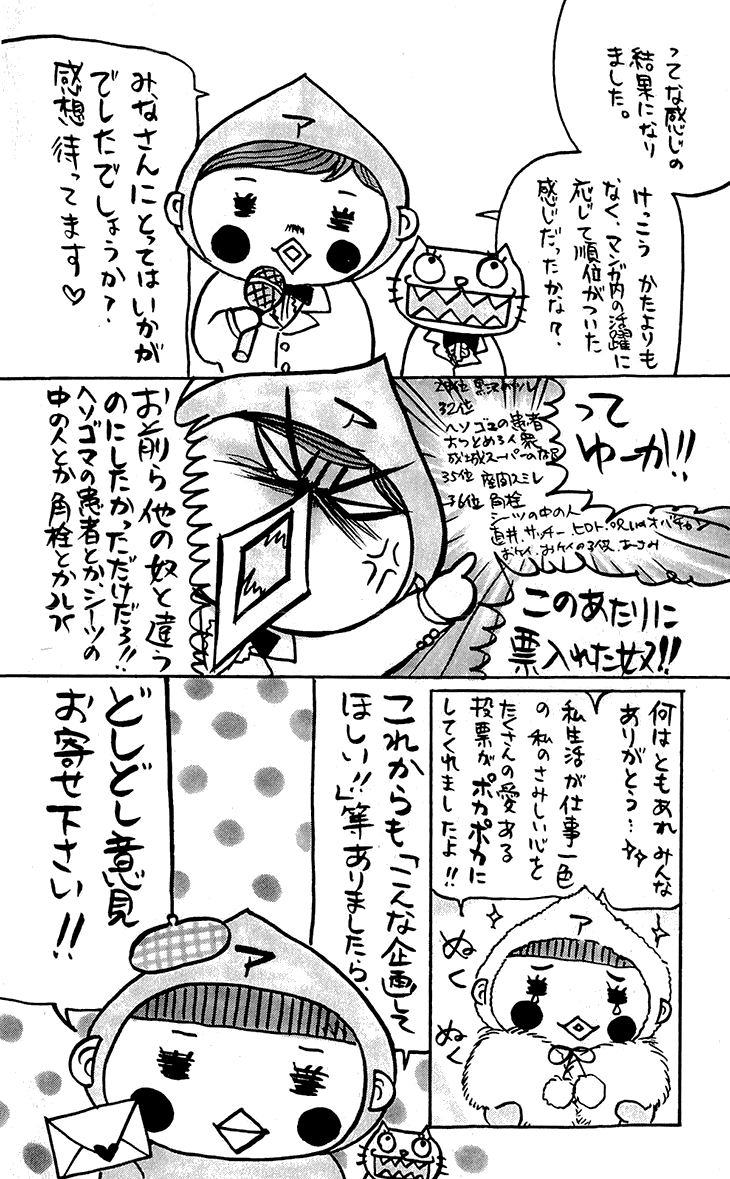 ってな感じの
結果になり
ました。
けっこう かたよりも
なく、マンガ内の活躍に
応じて順位がついた
感じだったかな?
みなさんにとってはいかが
でしたでしょうか?
感想待ってます♡
ア
って
ゆーか!!
32位
ヘソゴマの患者
おつとめろイ祭
成城スーパーの
35位 座間スミレ
36位 角栓
シーツの中の人
このあたりに
票入れた奴!!
ア
お前ら他の奴と違う
のにしたかっただけだろ!!
ヘソゴマの患者とか、シーツの
中の人とか角栓とかルパ
何はともあれ みんな
ありがとう…
私生活が仕事一色
の私のさみしい心を
たくさんの愛ある
投票が ポカポカに
してくれましたよ!!
ア
ぬく
ぬく
これからも「こんな企画して
ほしい!!」等ありましたら、
どしどし意見
お寄せ下さい!!
ア